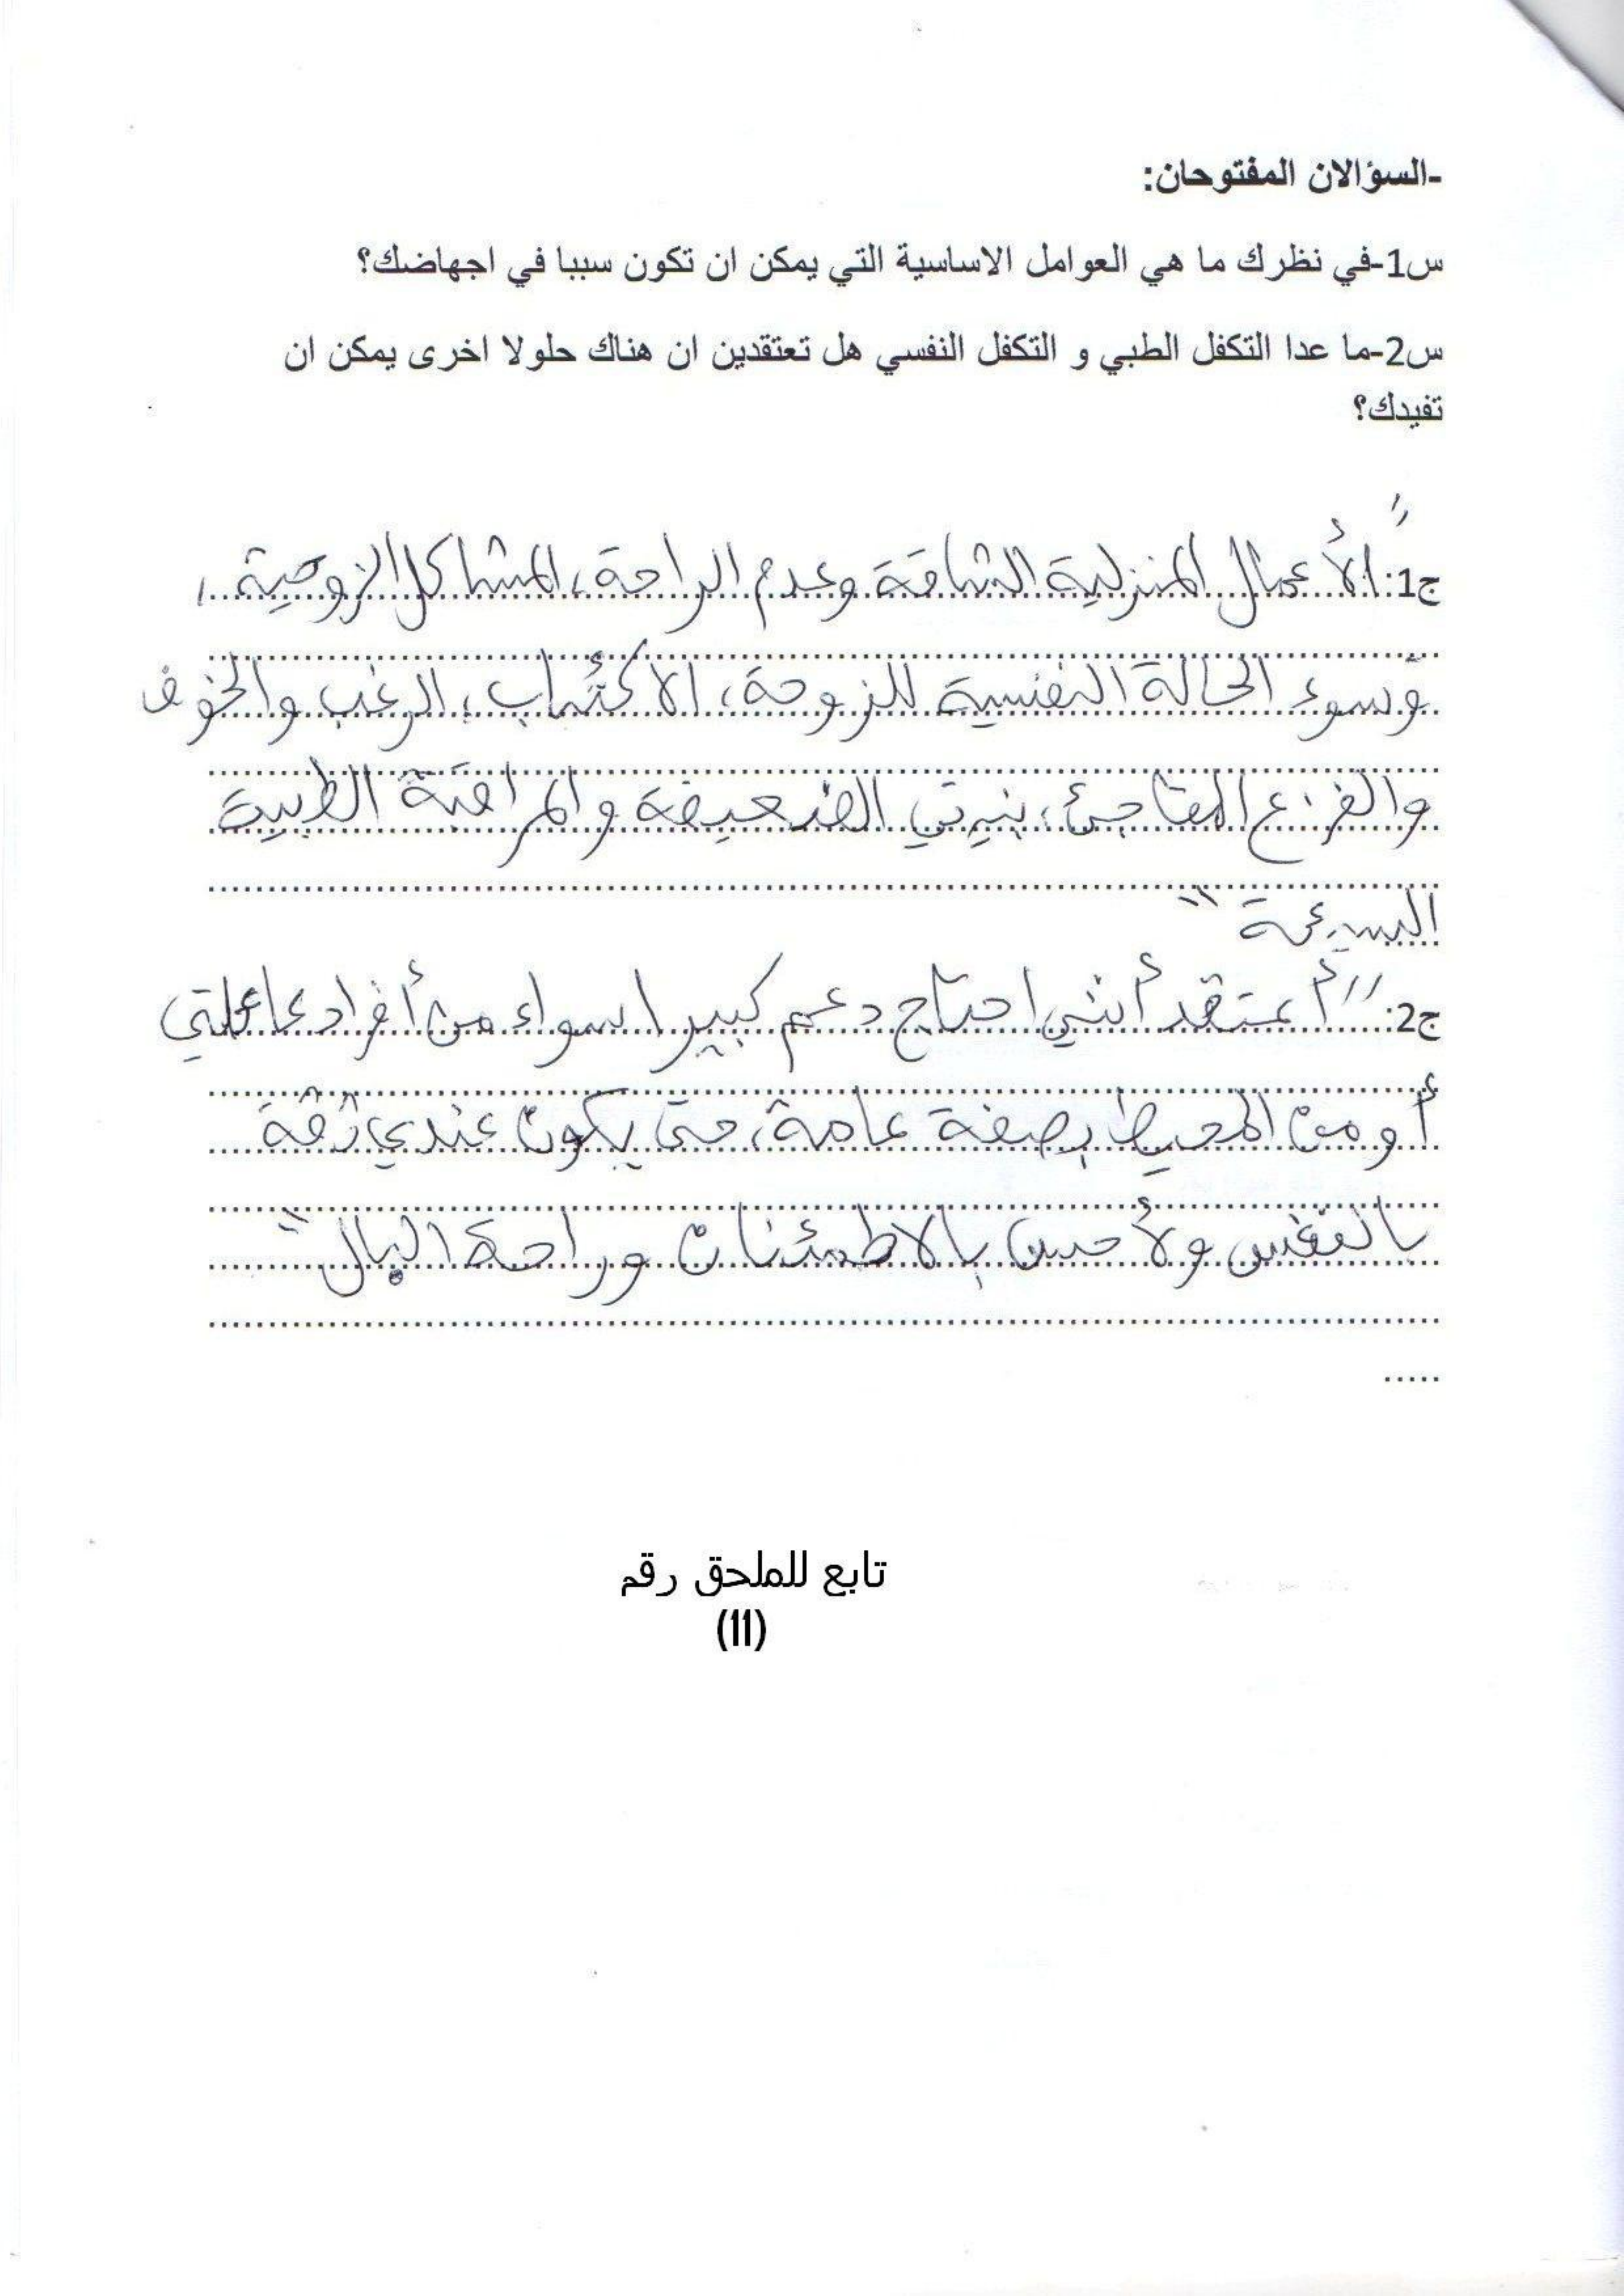 -السؤالان المفتوحان:
س1-في نظرك ما هي العوامل الاساسية التي يمكن ان تكون سببا في اجهاضك؟
س2-ما عدا التكفل الطبي و التكفل النفسي هل تعتقدين ان هناك حلولا اخرى يمكن ان
تفيدك؟
ج1: "الأعمال المنزلية الشاقة وعدم الراحة، المشاكل الزوجية،
وسوء الحالة النفسية للزوجة، الاكتئاب، الرعب والخوف
والفزع المفاجئ، بنيتي الضعيفة والمراقبة الطبية
السيئة"
ج2: "أعتقد أنني احتاج دعم كبير اسواء من أفراد عائلتي
أو من المحيط بصفة عامة، حتى يكون عندي ثقة
بالنفس ولأحس بالاطمئنان وراحة البال"
تابع للملحق رقم
(11)